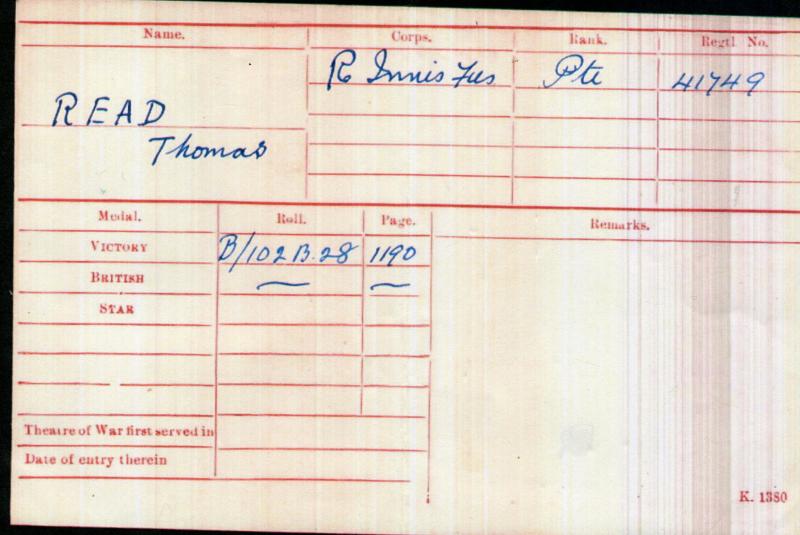 Name. Corps. Rank. Regtl. No.
R Innis Fus Pte 41749
READ
Thomas
Medal. Roll. Page. Remarks.
VICTORY B/102 B.28 1190
BRITISH
STAR
Theatre of War first served in
Date of entry therein
K. 1380